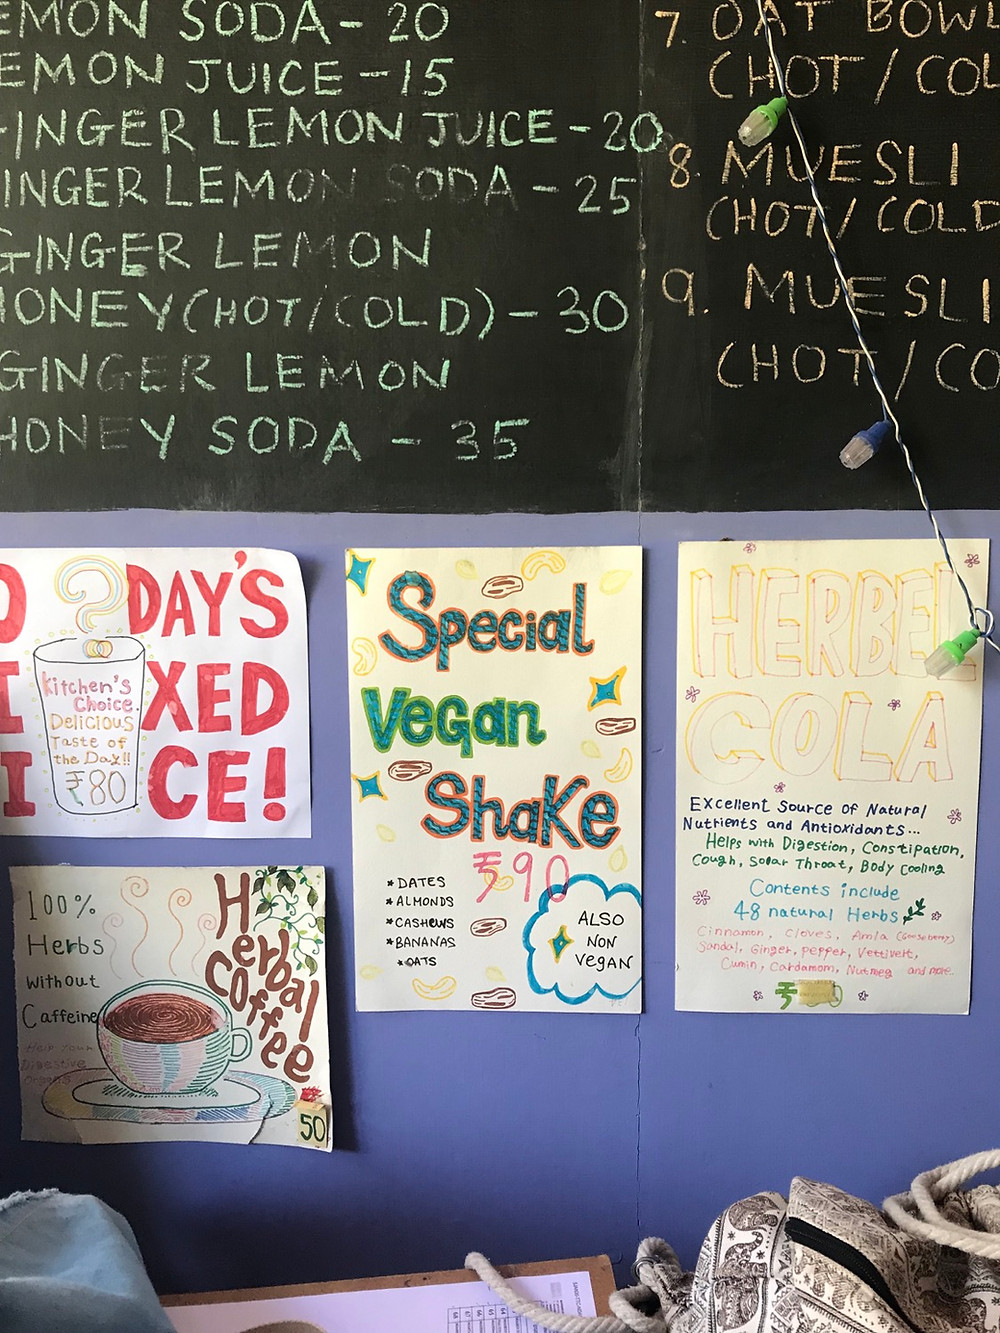 EMON SODA - 20
EMON JUICE - 15
GINGER LEMON JUICE - 20
INGER LEMON SODA - 25
GINGER LEMON
HONEY (HOT/COLD) - 30
GINGER LEMON
HONEY SODA - 35
7. OAT BOWL
(HOT / COL
8. MUESLI
(HOT/ COLD
9. MUESLI
(HOT / CO
O DAY'S
I XED
I CE!
Kitchen's
Choice
Delicious
Taste of
the Day!!
₹80
Special
Vegan
Shake
₹90
* DATES
* ALMONDS
* CASHEWS
* BANANAS
* OATS
ALSO
NON
VEGAN
HERBEL
COLA
Excellent Source of Natural
Nutrients and Antioxidants...
Helps with Digestion, Constipation,
Cough, Solar Throat, Body Cooling
Contents include
48 natural Herbs
Cinnamon, Cloves, Amla (Gooseberry)
Sandal, Ginger, Pepper, Vettivert,
Cumin, Cardamom, Nutmeg and more.
₹
100%
Herbs
without
Caffeine
Help your
Digestive
Organs
Herbal
Coffee
50